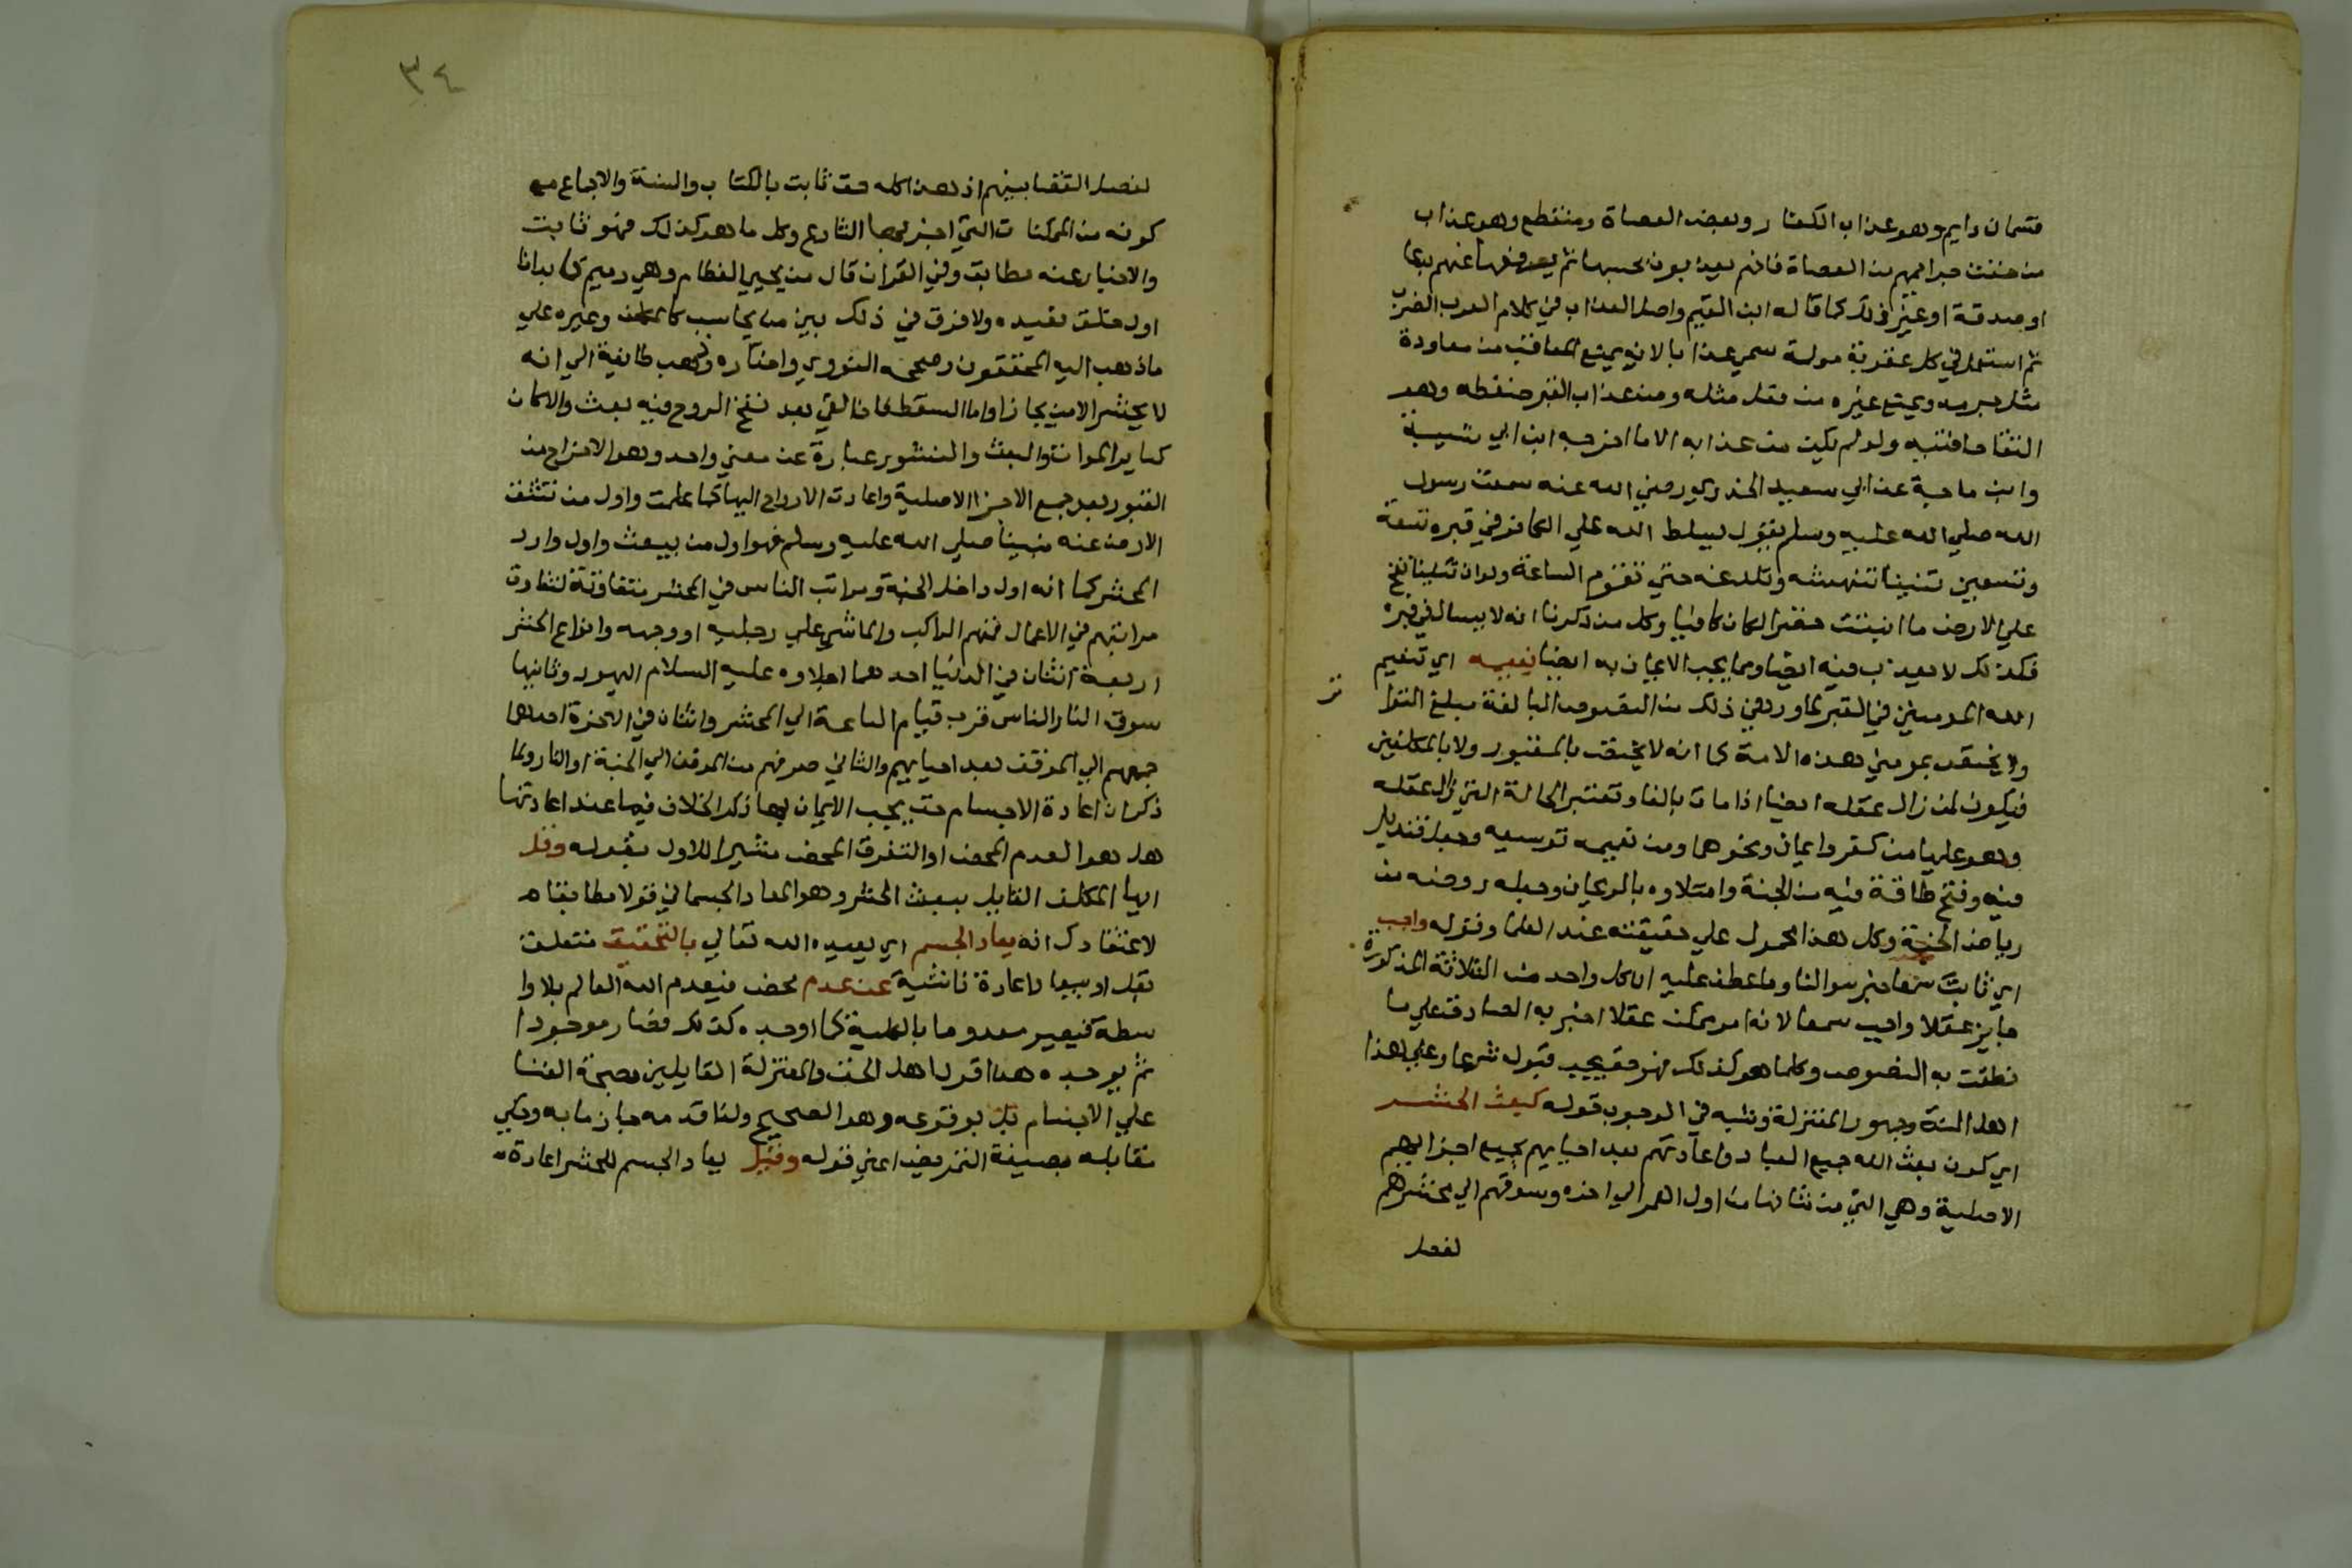 قسمان دايم وهو عذاب الكفار وبعض العصاة ومنقطع وهو عذاب
من خفت جرايمهم من العصاة فانهم يعذبون بحسبها ثم يرفع عنهم بدعا
او صدقة او غير ذلك كما قاله ابن القيم واصل العذاب في كلام العرب الضرب
ثم استعمل في كل عقوبة مولمة سمي عذابا لانه يمنع المعاقب من معاودة
مثل جرمه ويمنع غيره من فعل مثله ومن عذاب القبر ضغطه وهو
التقا حافتيه ولو لم يكن من عذابه الا ما اخرجه ابن ابي شيبة
وابن ماجة عن ابي سعيد الخدري رضي الله عنه سمعت رسول
الله صلي الله عليه وسلم يقول يسلط الله علي الكافر في قبره تسعة
وتسعين تنينا تنهشه وتلدغه حتي تقوم الساعة ولو ان تنينا نفخ
علي الارض ما انبتت خضرا لكان كافيا وكل من ذكرنا انه لا يسال في قبره
فكذلك لا يعذب فيه ايضا ومما يجب الايمان به ايضا نعيمه اي تنعيم
الله المومنين في القبر لما ورد في ذلك من النصوص البالغة مبلغ التوا
تر
ولا يختص بمومني هذه الامة كما انه لا يختص بالمقبور ولا بالمكلفين
فيكون لمن زال عقله ايضا اذا مات بالغا وتعتبر الحالة التي زال عقله
وهو عليها من كفر وايمان ونحوهما ومن نعيمه توسيعه وجعل قنديل
فيه وفتح طاقة فيه من الجنة وامتلاوه بالريحان وجعله روضة من
رياض الجنة وكل هذا محمول علي حقيقته عند العلما وقوله واجب
اي ثابت سمعا خبر سوالنا وما عطف عليه اي كل واحد من الثلاثة المذكورة
جايز عقلا واجب سمعا لانه امر ممكن عقلا اخبر به الصادق علي ما
نطقت به النصوص وكلما هو كذلك فهو حق يجب قبوله شرعا وعلي هذا
اهل السنة وجمهور المعتزلة وشبه في الوجوب قوله كبعث الحشر
اي كون بعث الله جميع العباد واعادتهم بعد احيايهم بجميع اجزايهم
الاصلية وهي التي من شانها من اول العمر الي اخره وسوقهم الي محشرهم
لفصل
٣٤
لفصل القضا بينهم اذ هذا كله حق ثابت بالكتاب والسنة والاجماع مع
كونه من الممكنات التي اخبر بها الشارع وكل ما هو كذلك فهو ثابت
والاخبار عنه مطابق وفي القران قال من يحيي العظام وهي رميم كما بدانا
اول خلق نعيده ولا فرق في ذلك بين من يحاسب كالمكلف وغيره علي
ما ذهب اليه المحققون وصححه النووي واختاره وذهب طايفة الي انه
لا يحشر الا من يجازا واما السقط فان القي بعد نفخ الروح فيه بعث والا كان
كساير الموات والبعث والنشور عبارة عن معني واحد وهو الاخراج من
القبور بعد جمع الاجزا الاصلية واعادة الارواح اليها كما علمت واول من تنشق
الارض عنه نبينا صلي الله عليه وسلم فهو اول من يبعث واول وارد
المحشر كما انه اول داخل الجنة ومراتب الناس في المحشر متفاوتة لتفاوت
مراتبهم في الاعمال فمنهم الراكب والماشي علي رجليه او وجهه وانواع الحشر
اربعة اثنان في الدنيا احدهما اجلاوه عليه السلام اليهود وثانيها
سوق النار الناس قرب قيام الساعة الي المحشر واثنان في الاخرة احدهما
جمعهم الي الموقف بعد احيايهم والثاني صرفهم من الموقف الي الجنة او النار ولما
ذكر ان اعادة الاجسام حق يجب الايمان بها ذكر الخلاف فيما عنه اعادتها
هل هو العدم المحض او التفرق المحض مشيرا للاول بقوله وقل
ايها المكلف القايل ببعث الحشر وهو المعاد الجسماني قولا مطابقا
لاعتقادك انه يعاد الجسم اي يعيده الله تعالي بالتحقيق متعلق
بقل او بيعاد اعادة ناشية عن عدم محض فيعدم الله العالم بلا وا
سطة فيصير معدوما بالكلية كما اوجده كذلك فصار موجودا
ثم يوجده هذا قول اهل الحق والمعتزلة القايلين بصحة الفنا
علي الاجسام بل بوقوعه وهو الصحيح ولذا قدمه جازما به وحكي
مقابله بصيغة التمريض اعني قوله وقيل يعاد الجسم للحشر اعادة